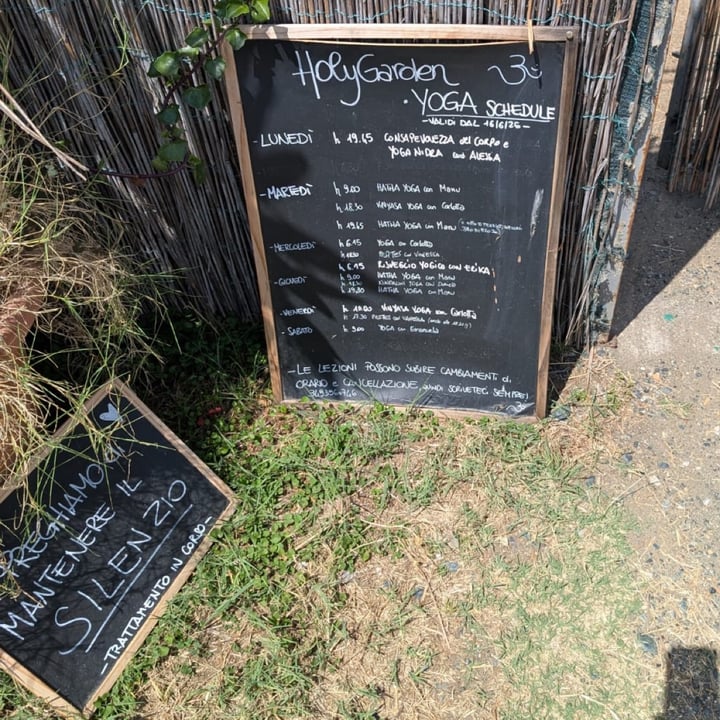 HolyGarden
YOGA SCHEDULE
- VALIDI DAL 16/6/25 -
- LUNEDÌ h 19.45 CONSAPEVOLEZZA del CORPO e
YOGA NIDRA con ALESSA
- MARTEDÌ h 9.00 HATHA YOGA con Manu
h 18.30 VINYASA YOGA con Carlotta
h 19.45 HATHA YOGA con Manu
- MERCOLEDÌ h 6.15 YOGA con Carlotta
PILATES con VANESSA
h 6.15 RISVEGLIO YOGICO con ERIKA
- GIOVEDÌ h 9.00 HATHA YOGA con Manu
KUNDALINI YOGA con
HATHA YOGA con Manu
- VENERDÌ VINYASA YOGA con Carlotta
PILATES con VANESSA
- SABATO h 9.00 YOGA con Emanuela
- LE LEZIONI POSSONO SUBIRE CAMBIAMENTI di
ORARIO e CANCELLAZIONE, QUINDI SCRIVETECI SEMPRE!
PREGHIAMO di
MANTENERE IL
SILENZIO
- TRATTAMENTO IN CORSO -